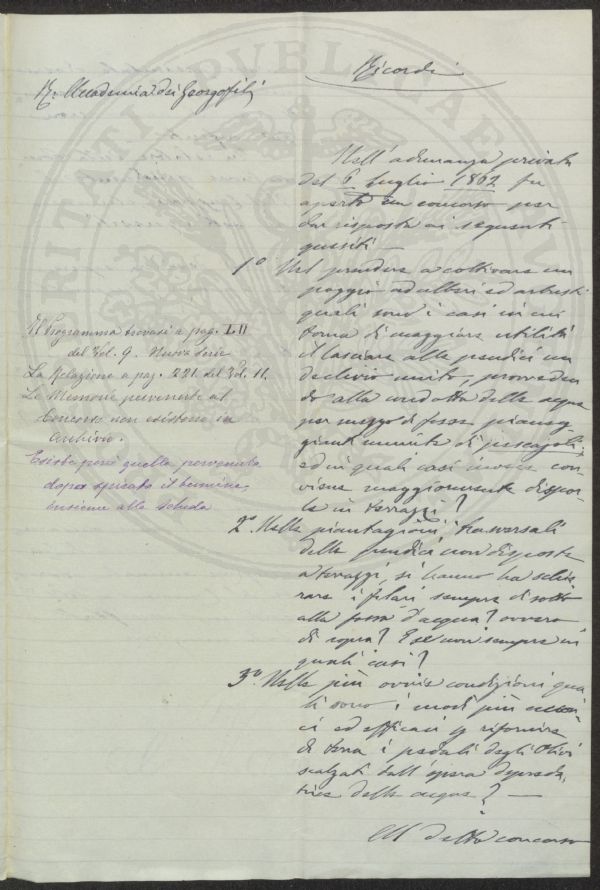 Ricordi
R. Accademia dei Georgofili
Nell'adunanza privata
del 6 Luglio 1862 fu
aperto un concorso per
dar risposta ai seguenti
quesiti —
1º Nel prendere a coltivare un
poggio ad alberi ed arbusti
quali sono i casi in cui
torna di maggiore utilità
il lasciare alle pendici un
declivio unito, provveden
do alla condotta delle acque
per mezzo di fosse pianeg
gianti munite di pescajoli,
ed in quali casi invece con
viene maggiormente dispor
le in terrazzi?
2º Nelle piantagioni trasversali
delle pendici non disposte
a terrazzi, si hanno ha schie
rare i filari sempre di sotto
alla fossa d'acqua? ovvero
di sopra? E se non sempre in
quali casi?
3º Nelle più ovvie condizioni qua
li sono i modi più
ci ed efficaci p rifornire
di terra i pedali degli Olivi
scalzati dall'opera depreda
trice delle acque? —
Al detto concorso
Il Programma trovasi a pag. LII
del Vol. 9. Nuova Serie
La Relazione a pag. 221. del Vol. 11.
Le Memorie pervenute al
Concorso non esistono in
Archivio.
Esiste però quella pervenuta
dopo spirato il termine,
insieme alla scheda